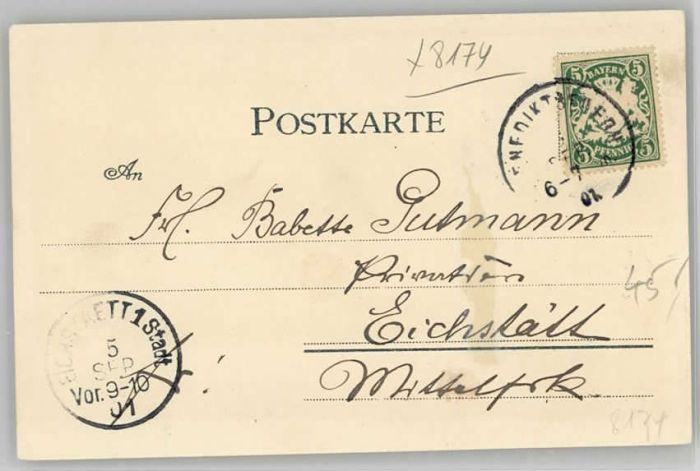 x8174
5 BAYERN 5
5 PFENNIG 5
POSTKARTE
An
Frl. Babette Gutmann
Privatière
Eichstätt
Mittelfrk.
45
EICHSTAETT 1 Stadt
5
SEP
Vor. 9-10
01
8174